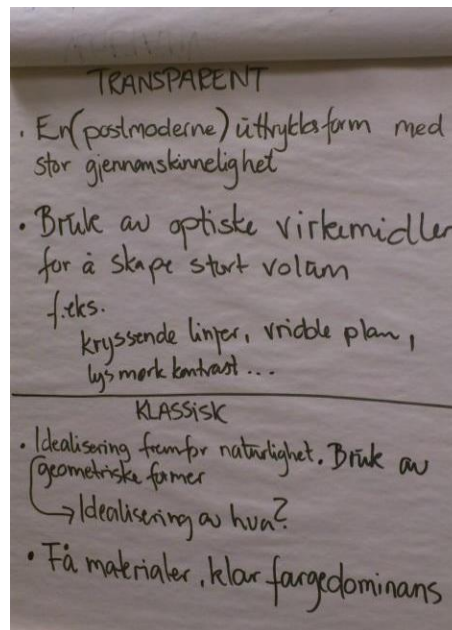 TRANSPARENT
• En (postmoderne) uttrykksform med
stor gjennomskinnelighet
• Bruk av optiske virkemidler
for å skape stort volum
f.eks.
kryssende linjer, vridde plan,
lys mørk kontrast ...
KLASSISK
• Idealisering fremfor naturlighet. Bruk av
geometriske former
→ Idealisering av hva?
• Få materialer, klar fargedominans